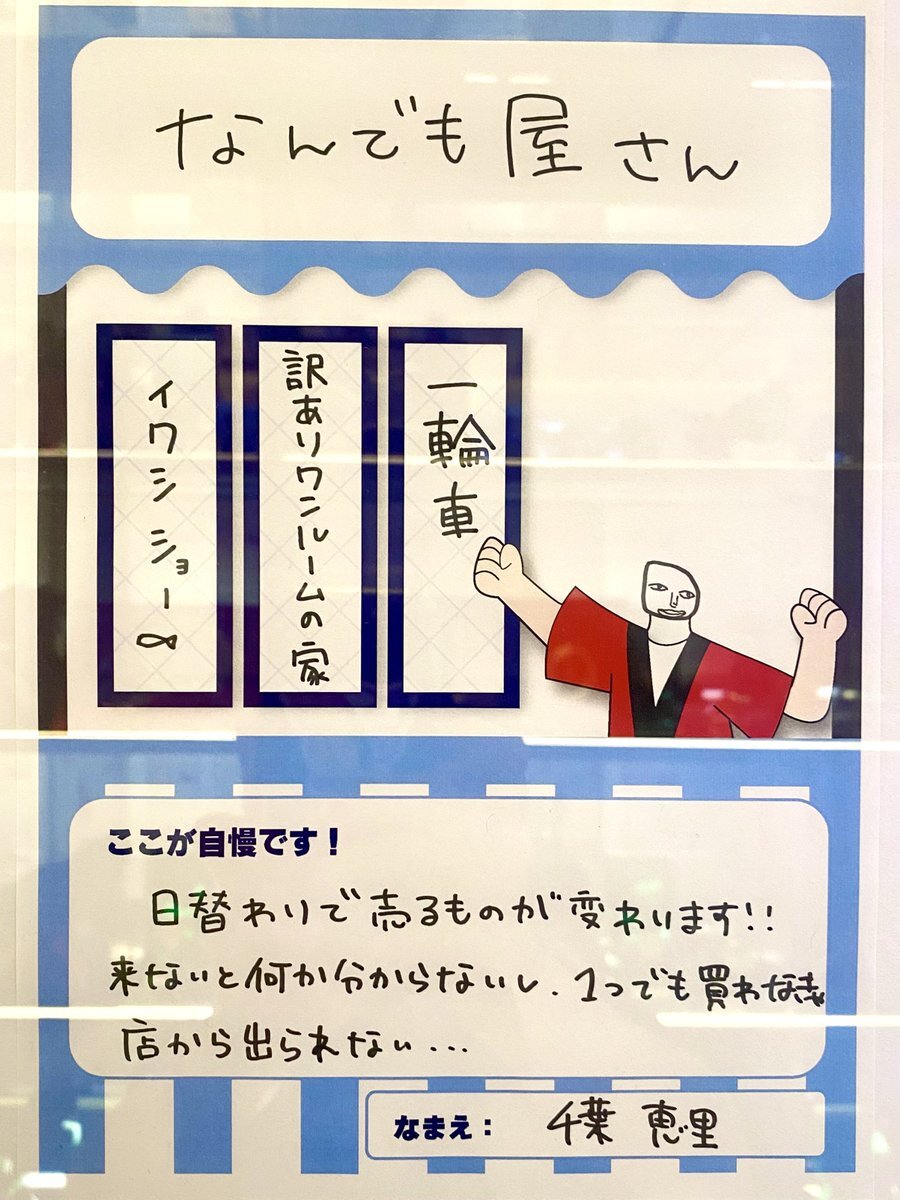 なんでも屋さん
一輪車
訳ありワンルームの家
イワシショー
ここが自慢です！
日替わりで売るものが変わります!!
来ないと何か分からないし、1つでも買わなきゃ
店から出られない...
なまえ： 千葉 恵里